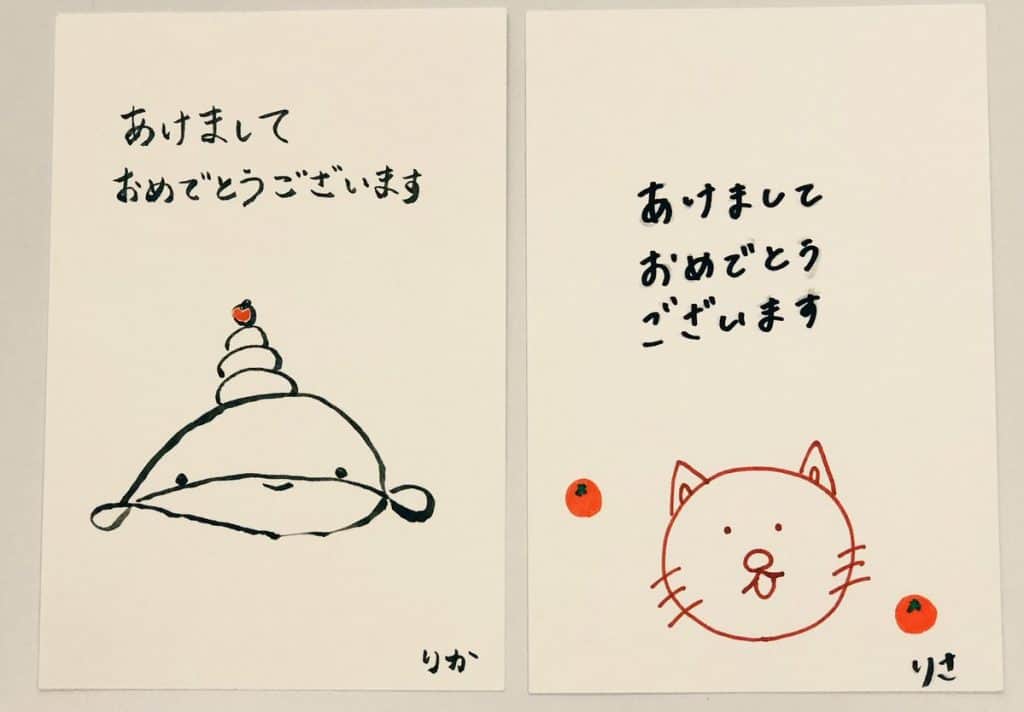 あけまして
おめでとうございます
りか
あけまして
おめでとう
ございます
りさ